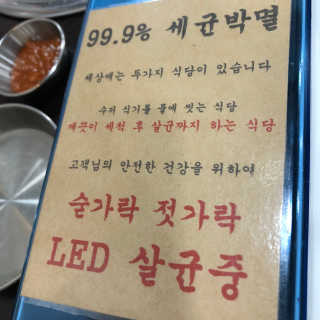 99.9응 세균박멸
세상에는 두가지 식당이 있습니다
수저 식기를 물에 씻는 식당
깨끗이 세척 후 살균까지 하는 식당
고객님의 안전한 건강을 위하여
숟가락 젓가락
LED 살균중